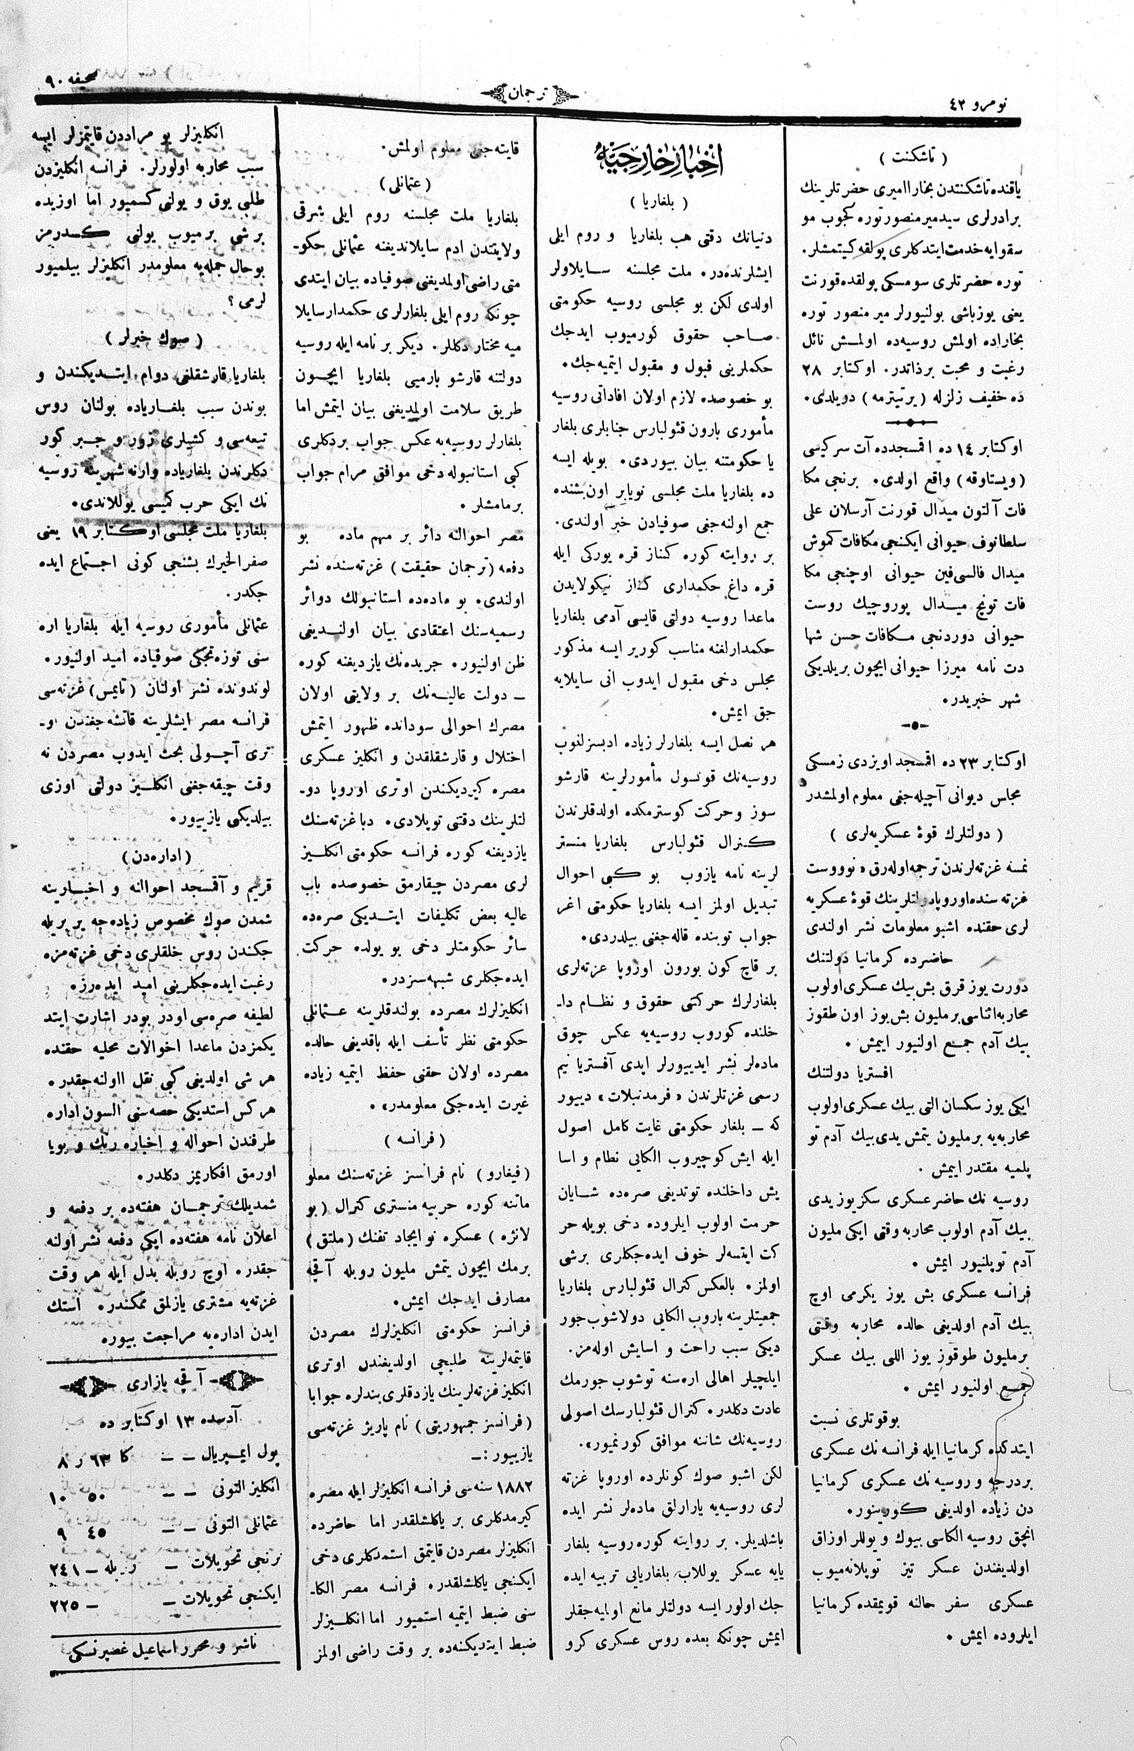 نومرو ٤٣
ترجمان
صحیفه ٩٠
( تاشکنت )
یاقنده تاشکندن بخارا امیری حضرتلرینك
برادرلری سید میر منصور توره کچوب مو
سقوایه خدمت ایتدکلری پولقه کیتمشلر.
توره حضرتلری سومسکی پولقده قورنت
یعنی یوزباشی بولنیورلر میر منصور توره
بخاراده اولمش روسیه‌ده اولمش نائل
رغبت و محبت برذاتدر. اوکتابر ٢٨
ده خفیف زلزله (برتیترمه) دویلدی.
اوکتابر ١٤ ده اقمسجدده آت سرکیسی
(ویستاوقه) واقع اولدی. برنجی مکا
فات آلتون میدال قورنت آرسلان علی
سلطانوف حیوانی ایکنجی مکافات کموش
میدال فالسی‌فین حیوانی اوچنجی مکا
فات تونچ میدال پوروچیك روست
حیوانی دوردنجی مکافات حسن شها
دت نامه میرزا حیوانی ایچون بریلدیکی
شهر خبریدر.
اوکتابر ٢٣ ده اقمسجد اویزدی زمسکی
مجلس دیوانی آچیله‌جغی معلوم اولمشدر
( دولتلرك قوهٔ عسکریه‌لری )
نمسه غزته‌لرندن ترجمه اوله‌رق «نوووست
غزته سنده اوروپا دولتلرینك قوهٔ عسکریه
لری حقنده اشبو معلومات نشر اولندی
حاضرده کرمانیا دولتنك
دورت یوز قرق بش بیك عسکری اولوب
محاربه اثناسی برملیون بش یوز اون طقوز
بیك آدم جمع اولنیور ایمش.
افستریا دولتنك
ایکی یوز سکسان التی بیك عسکری اولوب
محاربه‌یه برملیون یتمش یدی بیك آدم تو
پلمیه مقتدر ایمش.
روسیه نك حاضر عسکری سکز یوز یدی
بیك آدم اولوب محاربه وقتی ایکی ملیون
آدم توپلنیور ایمش.
فرانسه عسکری بش یوز یکرمی اوچ
بیك آدم اولدیغی حالده محاربه وقتی
برملیون طوقوز یوز اللی بیك عسکر
جمع اولنیور ایمش.
بوقوتلری نسبت
ایتدکده کرمانیا ایله فرانسه نك عسکری
بردرجه و روسیه نك عسکری کرمانیا
دن زیاده اولدیغی کورینور.
انجق روسیه الکاسی بیوك و یوللر اوزاق
اولدیغندن عسکر تیز توپلانه‌میوب
عسکری سفر حالنه قویمقده کرمانیا
ایلروده ایمش.
اخبار خارجیه
( بلغاریا )
دنیانك دقتی هب بلغاریا و روم ایلی
ایشلرنده‌در. ملت مجلسنه سایلاولر
اولدی لکن بو مجلسی روسیه حکومتی
صاحب حقوق کورمیوب ایدجك
حکملرینی قبول و مقبول ایتمیه‌جك.
بو خصوصده لازم اولان افاداتی روسیه
مأموری بارون قئولبارس جنابلری بلغار
یا حکومتنه بیان بیوردی. بویله ایسه
ده بلغاریا ملت مجلسی نویابر اون بشنده
جمع اولنه‌جغی صوفیادن خبر آلوندی.
بر روایته کوره کناز قره یورکی ایله
قره داغ حکمداری کناز نیکولایدن
ماعدا روسیه دولتی قایسی آدمی بلغاریا
حکمدارلغنه مناسب کوریر ایسه مذکور
مجلس دخی مقبول ایدوب انی سایلایه
جق ایمش.
هر نصل ایسه بلغارلر زیاده ادبسزلنوب
روسیه‌نك قونسول مأمورلرینه قارشو
سوز وحرکت کوسترمکده اولدقلرندن
کنرال قئولبارس بلغاریا منستر
لرینه نامه یازوب بو کبی احوال
تبدیل اولمز ایسه بلغاریا حکومتی اغر
جواب توبنده قاله‌جغی بیلدردی.
بر قاچ کون بورون اوزوپا غزته‌لری
بلغارلرك حرکتی حقوق و نظام دا۔
خلنده کوروب روسیه‌یه عکس چوق
ماده‌لر نشر ایدییورلر ایدی آفستریا نیم
رسمی غزتلرندن «فرمدنبلات» دییور
که ــ بلغار حکومتی غایت کامل اصول
ایله ایش کوچیروب الکایی نظام و اسا
یش داخلنده توتدیغی صره‌ده شایان
حرمت اولوب ایلروده دخی بویله حر
کت ایتسه‌لر خوف ایده‌جکلری برشی
اولمز. بالعکس کنرال قئولبارس بلغاریا
جمعیتلرینه باروب الکایی دولاشوب جور
دیکی سبب راحت و اسایش اوله‌مز.
ایلچیلر اهالی اره‌سنه توشوب جورمك
عادت دکلدر. کنرال قئولبارسك اصولی
روسیه‌نك شاننه موافق کورنمیور».
لکن اشبو صوك کونلرده اوروپا غزته
لری روسیه‌یه یارارلق ماده‌لر نشر ایده
باشلدیلر. بر روایته کوره روسیه بلغار
یایه عسکر یوللاب بلغاریایی تربیه ایده
جك اولور ایسه دولتلر مانع اولمیه جقلر
ایمش چونکه بعده روس عسکری کرو
قایته‌جغی معلوم اولمش.
(عثمانلی)
بلغاریا ملت مجلسنه روم ایلی شرقی
ولایتندن ادم سایلاندیغنه عثمانلی حکو۔
متی راضی اولمدیغنی صوفیاده بیان ایتدی
چونکه روم ایلی بلغارلری حکمدار سایلا
میه مختار دکللر. دیکر بر نامه ایله روسیه
دولتنه قارشو بارمیی بلغاریا ایچون
طریق سلامت اولمدیغنی بیان ایتمش اما
بلغارلر روسیه به عکس جواب بردکلری
کبی استانبوله دخی موافق مرام جواب
برمامشلر.
مصر احوالنه دائر بر مهم ماده بو
دفعه (ترجمان حقیقت) غزته‌سنده نشر
اولندی. بو ماده‌ده استانبولك دوائر
رسمیه‌سنك اعتقادی بیان اولندیغی
ظن اولنیور. جریده‌نك یازدیغنه کوره
ــ دولت عالیه‌نك بر ولایتی اولان
مصرك احوالی سودانده ظهور ایتمش
اختلال و قارشقلقدن و انکلیز عسکری
مصره کیردیکندن اوتری اوروپا دو۔
لتلرینك دقتی توپلادی. دبا غزته‌سنك
یازدیغنه کوره فرانسه حکومتی انکلیز
لری مصردن چیقارمق خصوصده باب
عالیه بعض تکلیفات ایتدیکی صره‌ده
سائر حکومتلر دخی بو یولده حرکت
ایده‌جکلری شبهه سزدر.
انکلیزلرك مصرده بولندقلرینه عثمانلی
حکومتی نظر تأسف ایله باقدیغی حالده
مصرده اولان حقنی حفظ ایتمیه زیاده
غیرت ایده‌جکی معلومدر».
( فرانسه )
(فیغارو) نام فرانسز غزته‌سنك معلو
ماتنه کوره حربیه منستری کنرال (بو
لانژه) عسکره نو ایجاد تفنك (ملتق)
برمك ایچون یتمش ملیون روبله آقچه
مصارف ایدجك ایمش.
فرانسز حکومتی انکلیزلرك مصردن
قایتمه‌لرینه طلبچی اولدیغندن اوتری
انکلیز غزته‌لرینك یازدقلری بندلره جوابا
(فرانسز جمهوریتی) نام پاریز غزته‌سی
یازییور:ــ
١٨٨٢ سنه‌سی فرانسه انکلیزلر ایله مصره
کیرمدکلری بر یاکلشلقدر اما حاضرده
انکلیزلر مصردن قایتمق استمدکلری دخی
ایکنجی یاکلشلقدر. فرانسه مصر الکا۔
سنی ضبط ایتمیه استمیور اما انکلیزلر
ضبط ایتدیکنه‌ده بر وقت راضی اولمز
انکلیزلر بو مراددن قایتمزلر ایسه
سبب محاربه اولورلر. فرانسه انکلیزدن
طلبی یوق و یولنی کسمیور اما اوزیده
برشی برمیوب یولنی کسدرمز
بوحال جمله‌یه معلومدر انکلیزلر بیلمیور
لرمی؟
( صوك خبرلر )
بلغاریا قارشقلغی دوام ایتدیکندن و
بوندن سبب بلغاریاده بولنان روس
تبعه‌سی و کشیلری زور و جبر کور
دکلرندن بلغاریاده وارنه شهرینه روسیه
نك ایکی حرب کمیسی یوللاندی.
بلغاریا ملت مجلسی اوکتابر ١٩ یعنی
صفرالخیرك بشنجی کونی اجتماع ایده
جکدر.
عثمانلی مأموری روسیه ایله بلغاریا اره
سنی توزه‌تجکی صوفیاده امید اولنیور.
لوندونده نشر اولنان (تایمس) غزته‌سی
فرانسه مصر ایشلرینه قاتشه‌جغندن او۔
تری آچولی بحث ایدوب مصردن نه
وقت چیقه‌جغنی انکلیز دولتی اوزی
بیلدیکی یازییور.
(اداره‌دن)
قریم و آقمسجد احوالنه و اخبارینه
شمدن صوك مخصوص زیاده‌جه یر بریله
جکندن روس خلقلری دخی غزته‌مزه
رغبت ایده‌جکلرینی امید ایده‌رز.
لطیفه صره‌سی اودر بودر اشارت ایتد
یکمزدن ماعدا احوالات محلیه حقنده
هر شی اولدیغی کبی نقل اولنه جقدر.
هرکس استدیکی حصه‌سنی السون اداره
طرفندن احواله و اخباره رنك و بویا
اورمق افکاریمز دکلدر.
شمدیلك ترجمان هفته‌ده بر دفعه و
اعلان نامه هفته‌ده ایکی دفعه نشر اولنه
جقدر. اوچ روبله بدل ایله هر وقت
غزته‌یه مشتری یازلمق ممکندر. استك
ایدن اداره‌یه مراجعت بیوره
آقچه بازاری
آدسده ١٣ اوکتابر ده
پول ایمپریال ــ ــ کا ٦٣ ر ٨
انکلیز التونی ــ ــ ٥٠ ١٠
عثمانلی التونی ــ ٤٥ ٩
برنجی تحویلات ــ روبله ــ ٢٤١
ایکنجی تحویلات ــ ــ ٢٢٥
ناشر و محرر اسماعیل غصپرنسکی